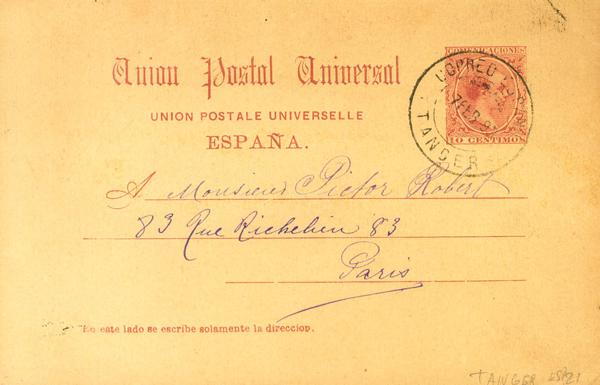 COMUNICACIONES
Union Postal Universal
UNION POSTALE UNIVERSELLE
ESPAÑA.
10 CENTIMOS
CORREO
7 FEB 9
TANGER
A Monsieur Pictor Robert
83 Rue Richelieu 83
Paris
En este lado se escribe solamente la direccion.
TANGER